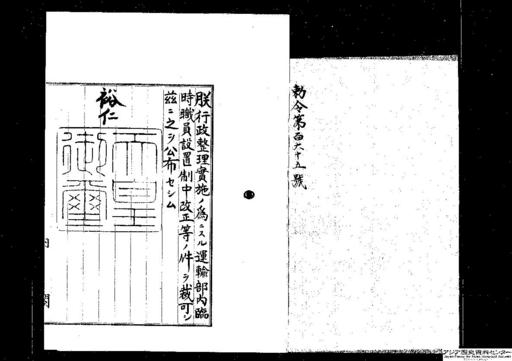 勅令第百六十五號
朕行政整理實施ノ爲ニスル運輸部內臨
時職員設置制中改正等ノ件ヲ裁可シ
茲ニ之ヲ公布セシム
裕仁
天皇
御璽
內閣
アジア歴史資料センター